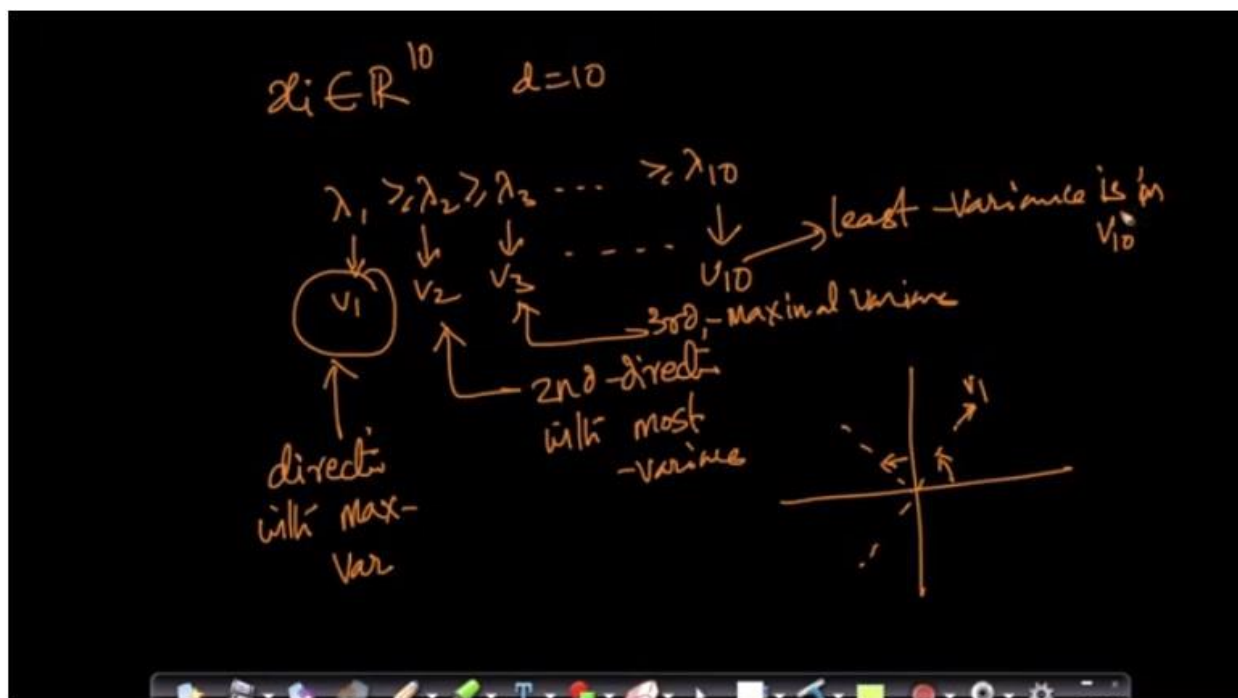 xi ∈ ℝ^10 d=10
λ1 ≥ λ2 ≥ λ3 ... ≥ λ10
v1 v2 v3 .... v10
least variance is in
v10
3rd, maximal variance
2nd directi
with most
variance
directi
with max-
var
v1